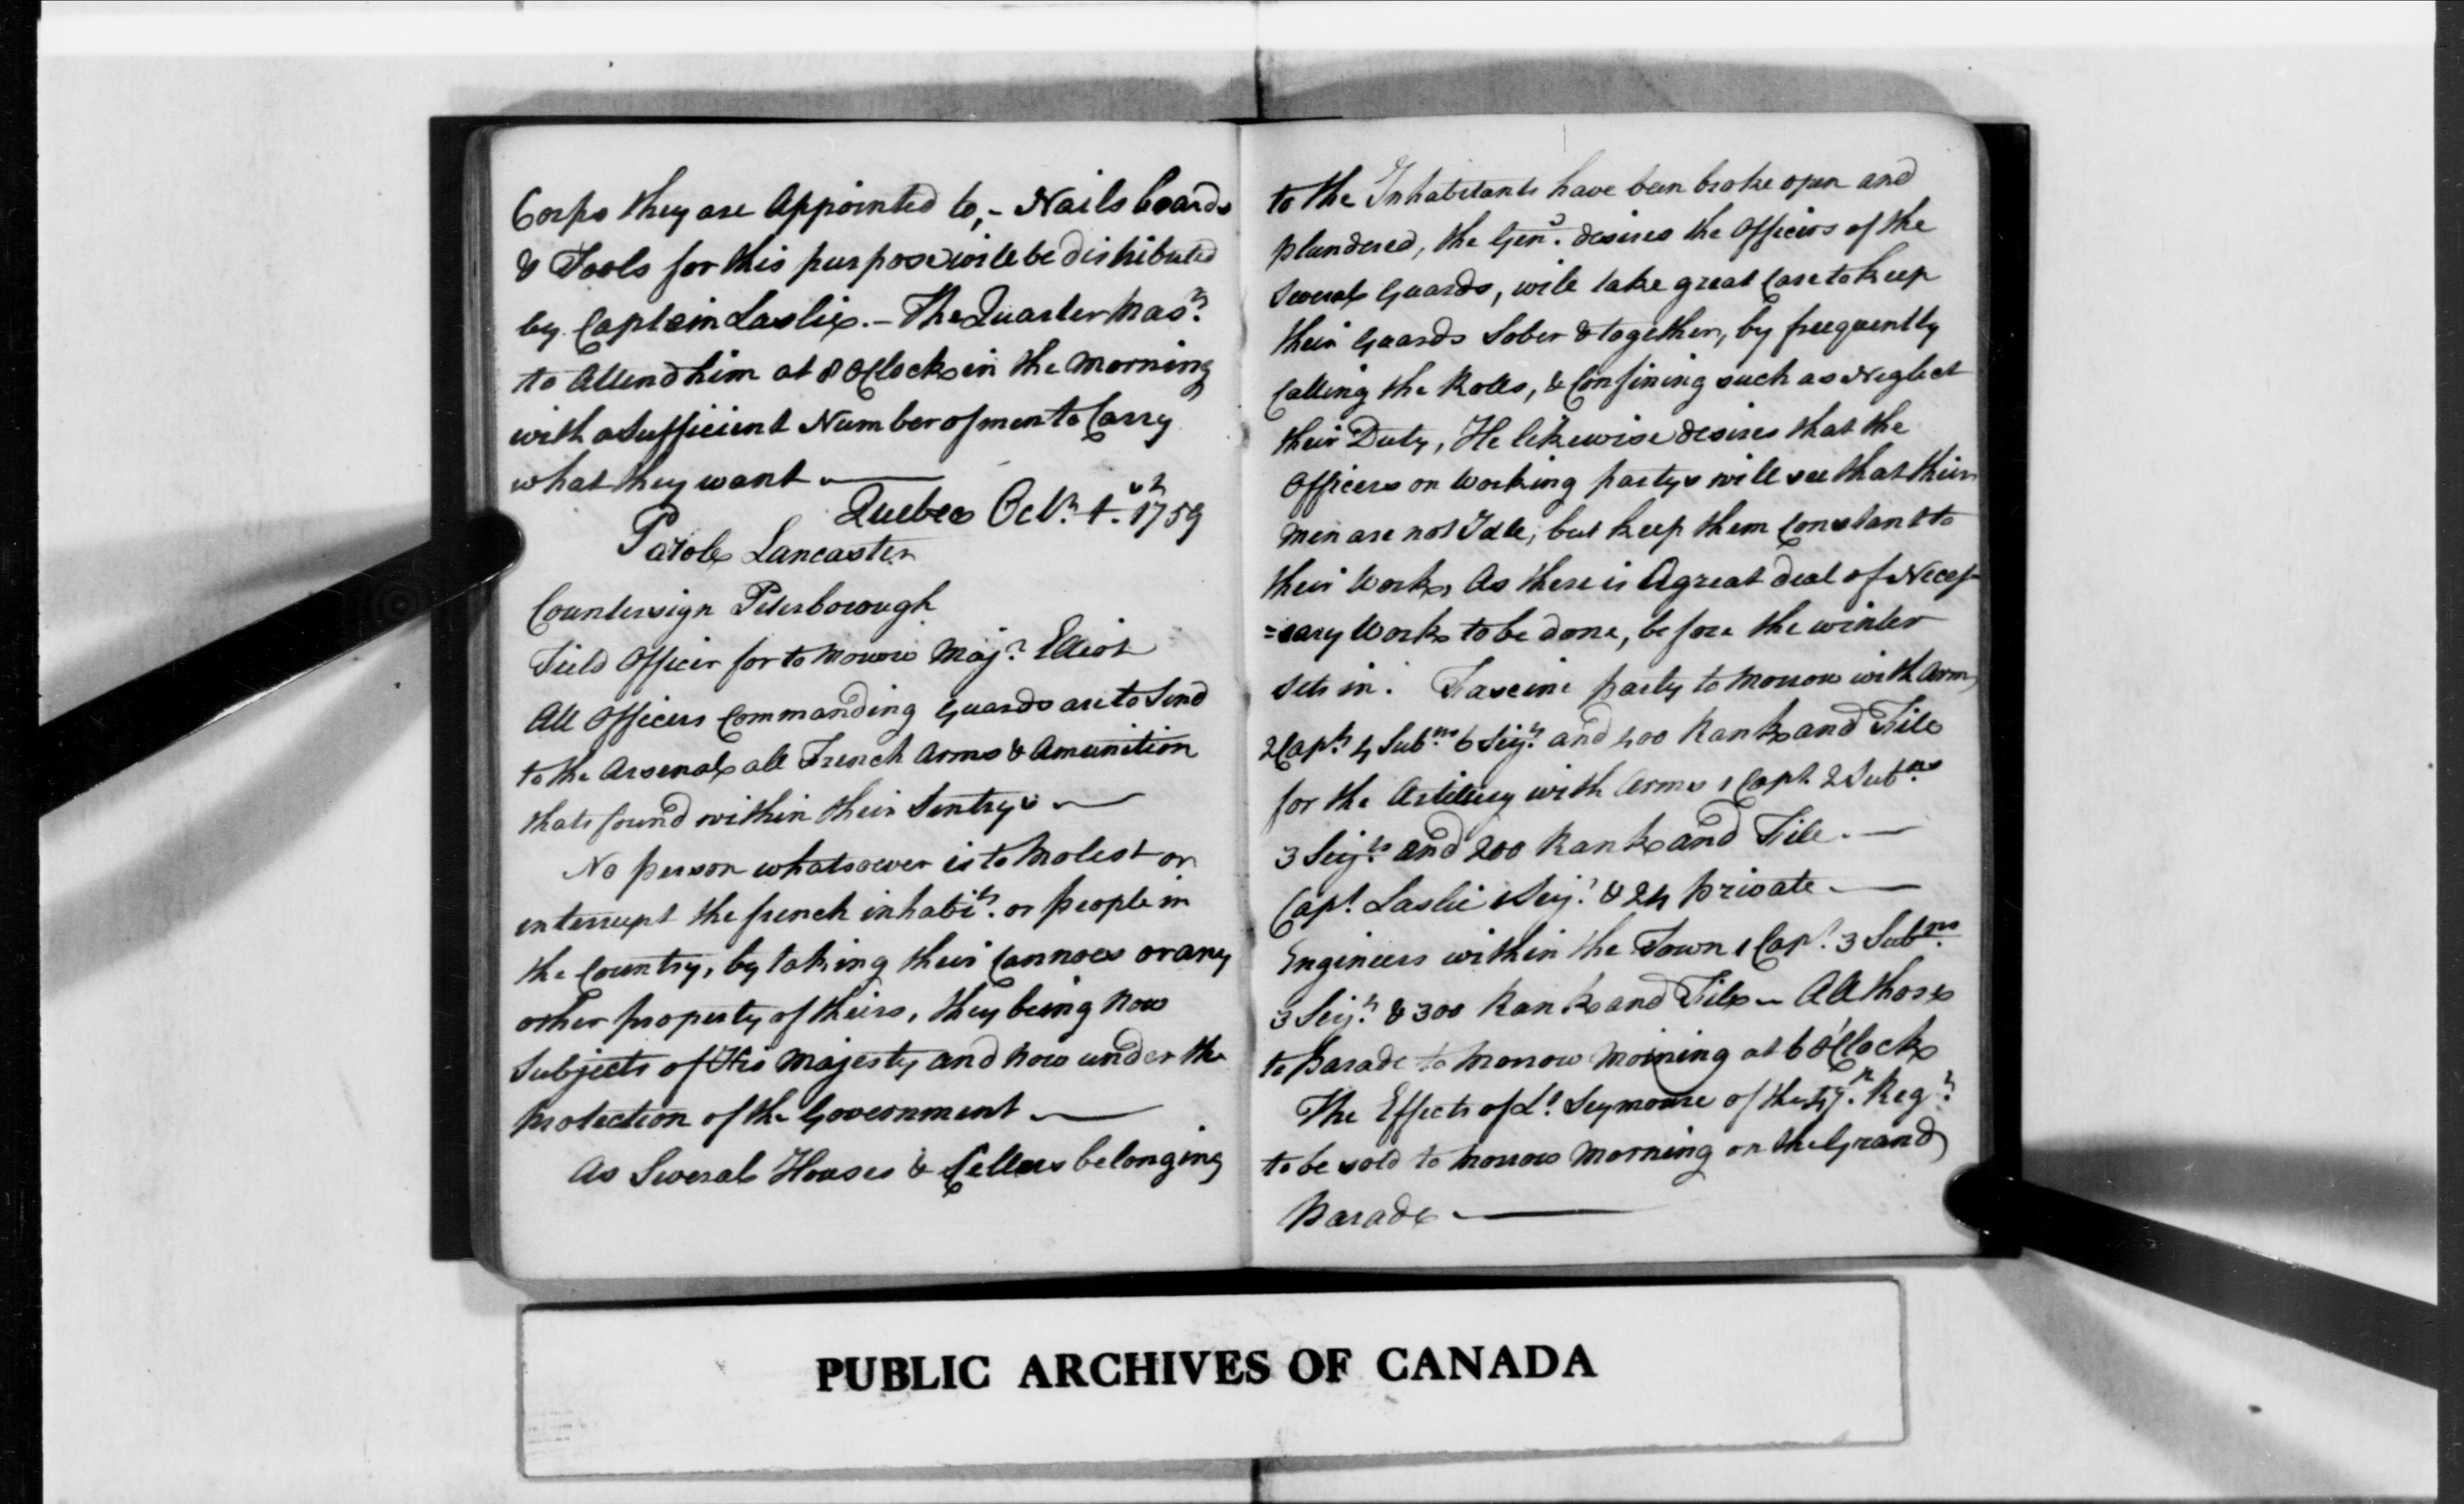 Corps they are Appointed to, - Nails boards
& Tools for this purpose will be distributed
by Captain Laslie. - The Quarter Mas.rs
to Attend him at 8 OClock in the Morning
with a Sufficient Number of men to Carry
what they want
Quebec Oct.r 1.st 1759
Parole Lancaster
Countersign Peterborough
Field Officer for to Morow Maj.r Elliot
All Officers Commanding Guards are to Send
to the Arsenal all French Arms & Amunition
thats found within their Sentrys
No person whatsoever is to Molest or
interrupt the french inhabi.ts or people in
the Country, by taking their Cannoes or any
other property of theirs, they being Now
Subjects of His Majesty and Now under the
protection of the Government
As Several Houses & Cellars belonging
to the Inhabitants have been broke open and
plundered, the Gen.l desires the Officers of the
Several Guards, will take great Care to keep
their Guards Sober & together, by frequently
Calling the Rolls, & Confining such as Neglect
their Duty, He likewise desires that the
Officers on Working partys will see that their
Men are not Idle, but keep them Constant to
their Work, As there is A great deal of Neces
=sary Work to be done, before the winter
sets in. Fascine party to Morrow with Arms
2 Cap.ts 4 Sub.ns 6 Serj.ts and 400 Rank and File
for the Artillery with Arms 1 Capt. 2 Sub.ns
3 Serj.ts and 200 Rank and File.
Cap.t Laslie 1 Serj.t & 24 private
Engineers within the Town 1 Cap.t 3 Sub.ns
3 Serj.ts & 300 Rank and File - All those
to Parade to Morrow Morning at 6 OClock
The Effects of L.t Seymoure of the 47.th Reg.t
to be sold to Morrow Morning on the Grand
Parade
PUBLIC ARCHIVES OF CANADA